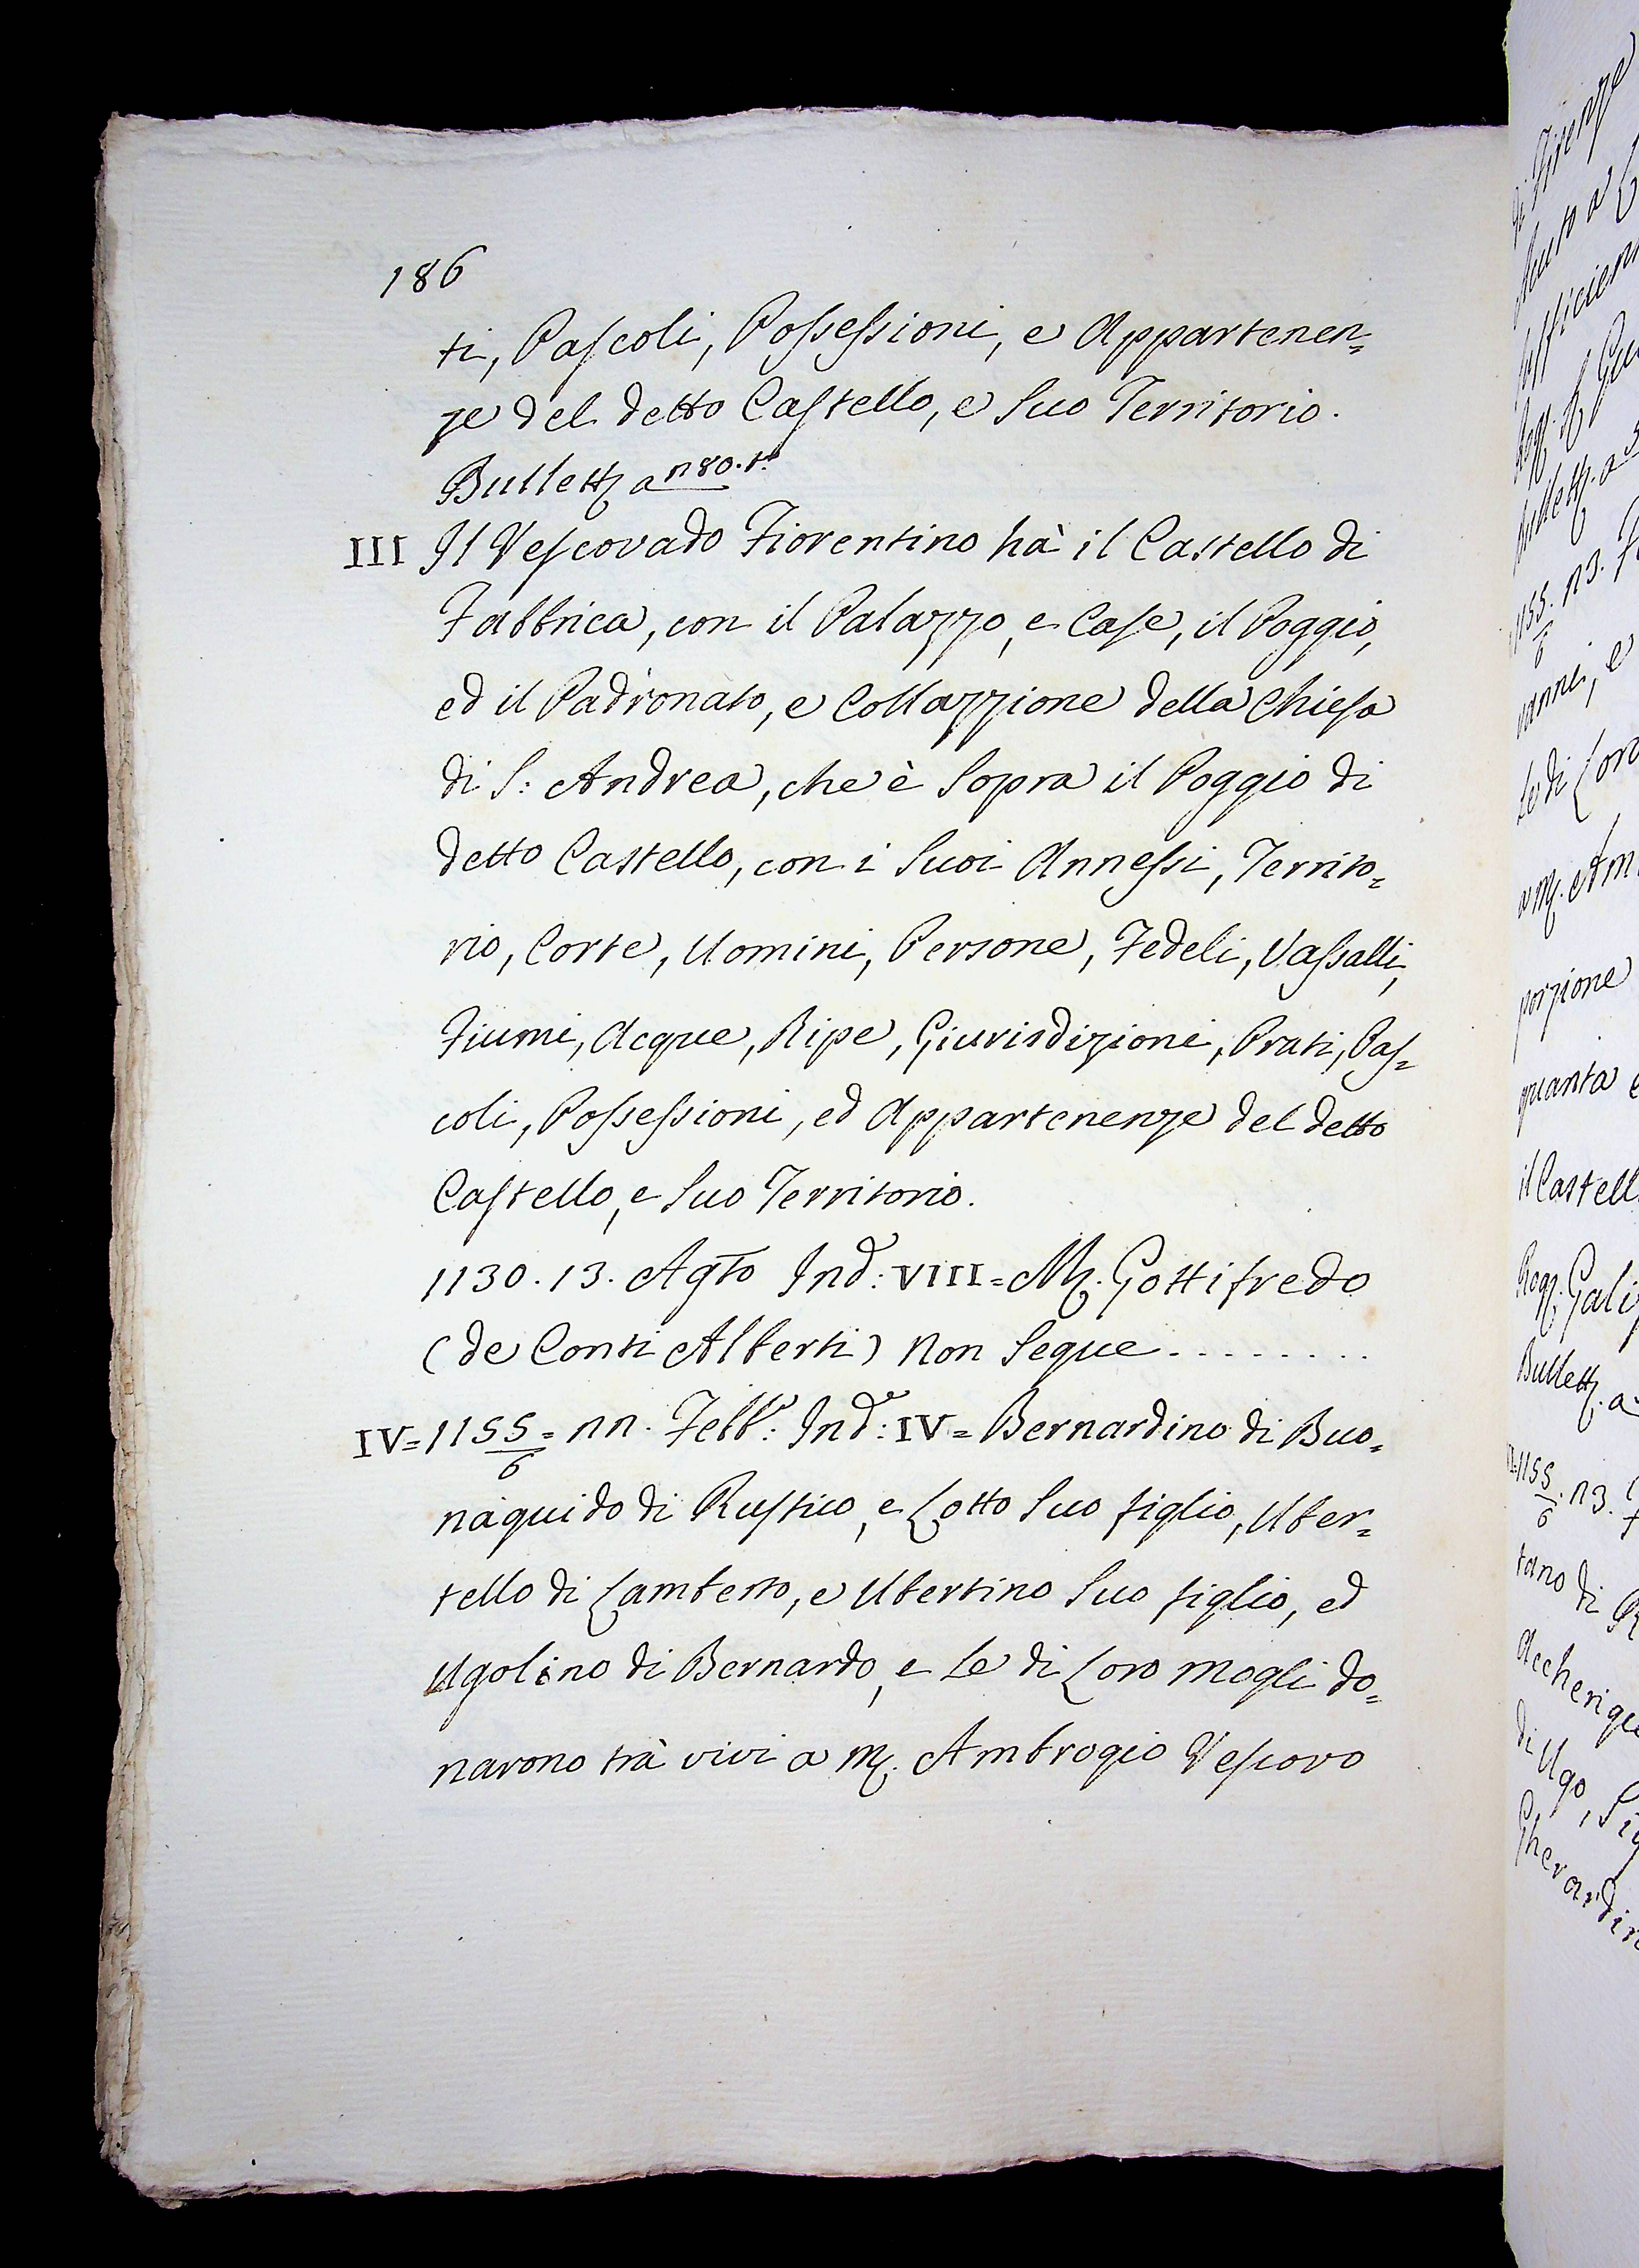 186
ti, Pascoli, Possessioni, e Appartenen=
ze del detto Castello, e Suo Territorio.
Bullett. a n80. t.
III Il Vescovado Fiorentino hà il Castello di
Fabbrica, con il Palazzo, e Case, il Poggio,
ed il Padronato, e Collazzione della Chiesa
di S: Andrea, che è Sopra il Poggio di
detto Castello, con i Suoi Annessi, Territo=
rio, Corte, Uomini, Persone, Fedeli, Vassalli,
Fiumi, Acque, Ripe, Giurisdizioni, Prati, Pas=
coli, Possessioni, ed Appartenenze del detto
Castello, e Suo Territorio.
1130. 13. Agto Ind: VIII= M. Gottifredo
(de Conti Alberti) non Segue........
IV= 1155/6= nn. Febb: Ind: IV= Bernardino di Buo=
naguido di Rustico, e Lotto Suo figlio, Uber=
tello di Lamberto, e Ubertino Suo figlio, ed
Ugolino di Bernardo, e Le di Loro Mogli do=
narono trà vivi a M. Ambrogio Vescovo
di Firenze
1155/6. n3.
vanni, e
Le di Loro
porzione
quanta e
il Castell
Bullett. a
1155/6. n3.
tano di
di Ugo, Sig
Gherardin